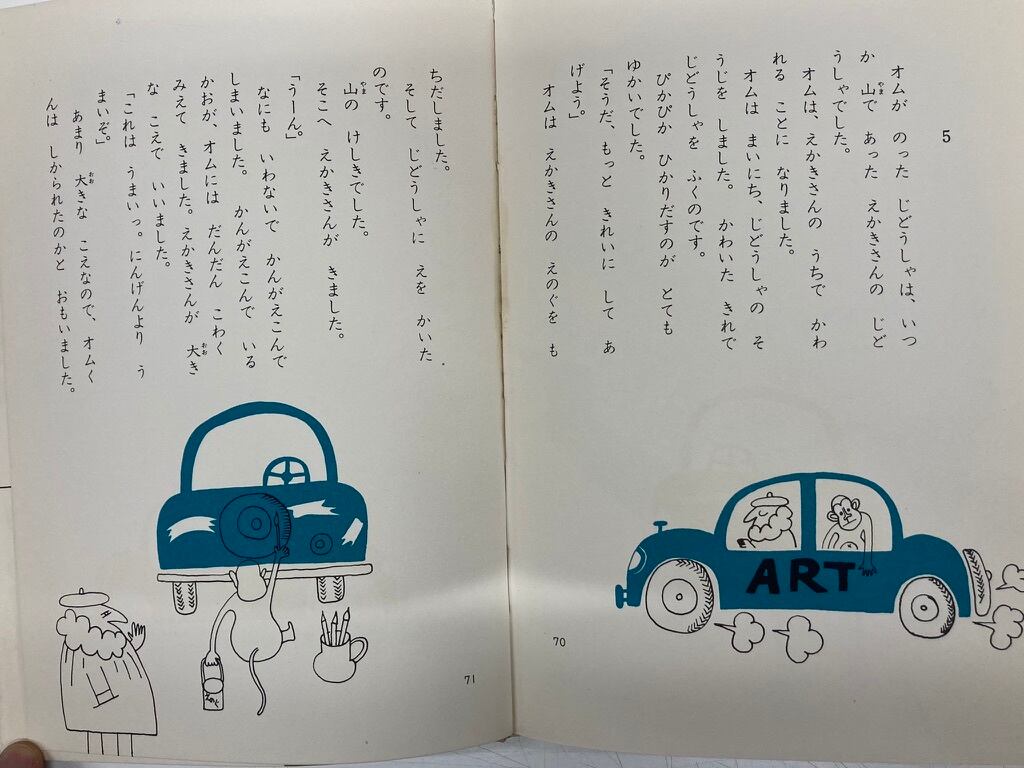 5
オムが のった じどうしゃは、いつ
か 山で あった えかきさんの じど
うしゃでした。
オムは、えかきさんの うちで かわ
れる ことに なりました。
オムは まいにち、じどうしゃの そ
うじを しました。 かわいた きれで
じどうしゃを ふくのです。
ぴかぴか ひかりだすのが とても
ゆかいでした。
「そうだ、もっと きれいに して あ
げよう。」
オムは えかきさんの えのぐを も
ART
70
ちだしました。
そして じどうしゃに えを かいた
のです。
山の けしきでした。
そこへ えかきさんが きました。
「うーん。」
なにも いわないで かんがえこんで
しまいました。 かんがえこんで いる
かおが、オムには だんだん こわく
みえて きました。えかきさんが 大き
な こえで いいました。
「これは うまいっ。にんげんより う
まいぞ。」
あまり 大きな こえなので、オムく
んは しかられたのかと おもいました。
71